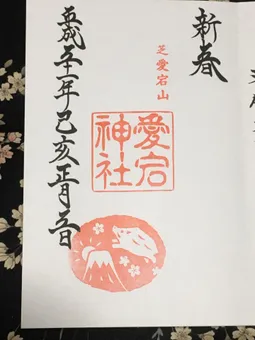 新春
芝愛宕山
愛宕
神社
平成三十一年己亥正月五日